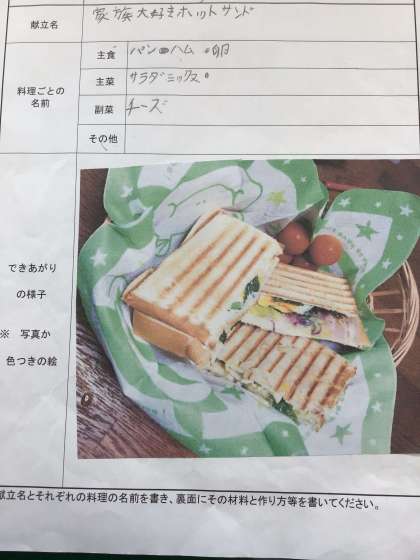 献立名
家族大好きホットサンド
料理ごとの
名前
主食
パン ハム 卵
主菜
サラダミックス
副菜
チーズ
その他
できあがり
の様子
※ 写真か
色つきの絵
献立名とそれぞれの料理の名前を書き、裏面にその材料と作り方等を書いてください。